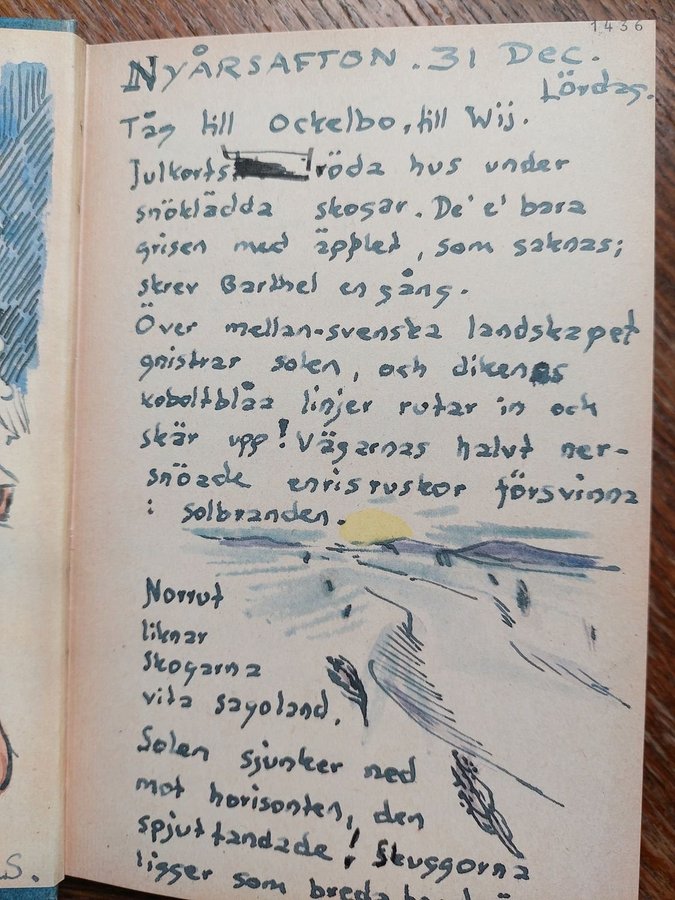 1436
NYÅRSAFTON. 31 DEC.
Lördag.
Tåg till Ockelbo, till Wij.
Julkorts röda hus under
snöklädda skogar. De' e' bara
grisen med äpplet, som saknas;
skrev Barthel en gång.
Över mellan-svenska landskapet
gnistrar solen, och dikenas
koboltblåa linjer rutar in och
skär upp! Vägarnas halvt ner-
snöade enrisruskor försvinna
i solbranden.
Norrut
liknar
skogarna
vita sagoland.
Solen sjunker ned
mot horisonten, den
spjuttandade! Skuggorna
ligger som breda
S.